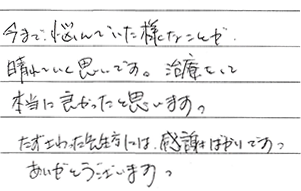 今まで、悩んでいた様なことが、
晴れていく思いです。治療をして
本当に良かったと思います。
たずさわった先生方には、感謝ばかりです。
ありがとうございます。